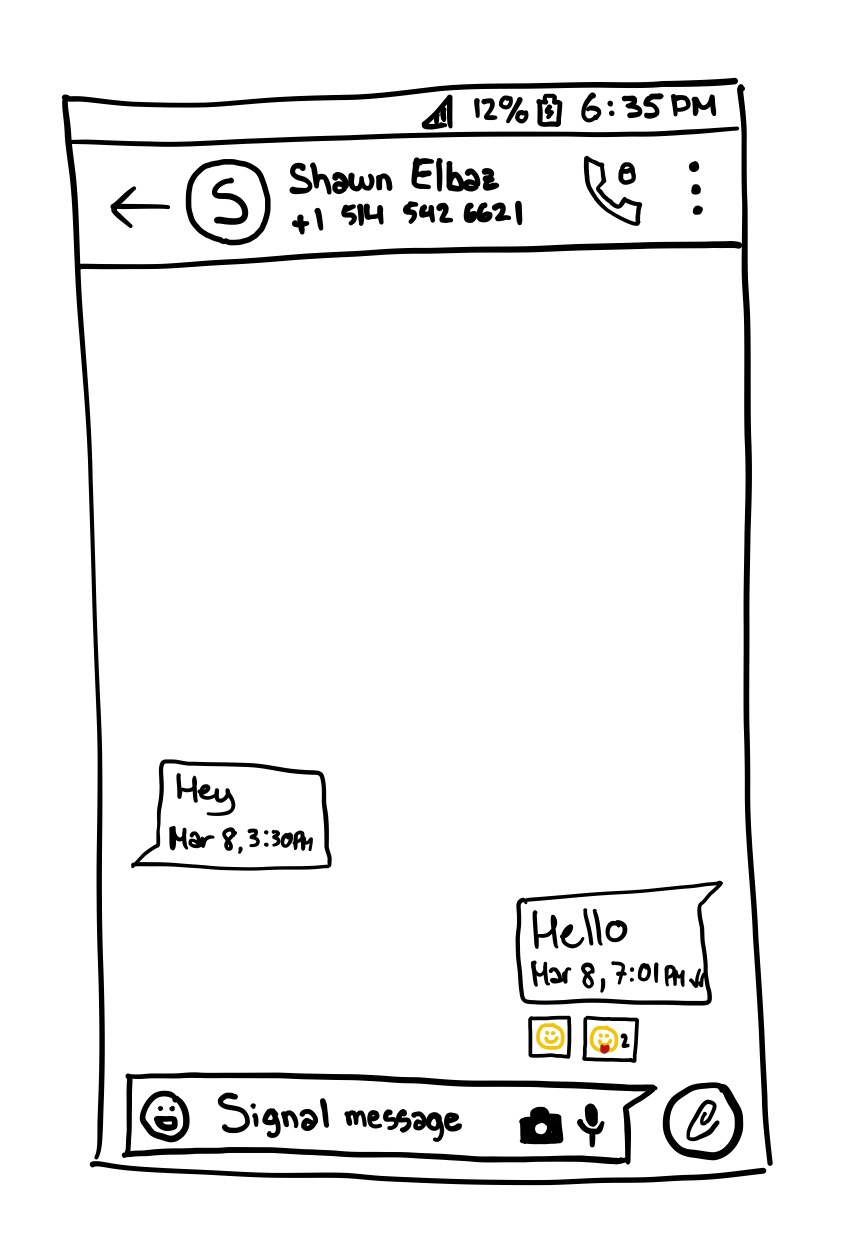 12% 6:35 PM
S
Shawn Elbaz
+1 514 542 6621
Hey
Mar 8, 3:30PM
Hello
Mar 8, 7:01PM
2
Signal message